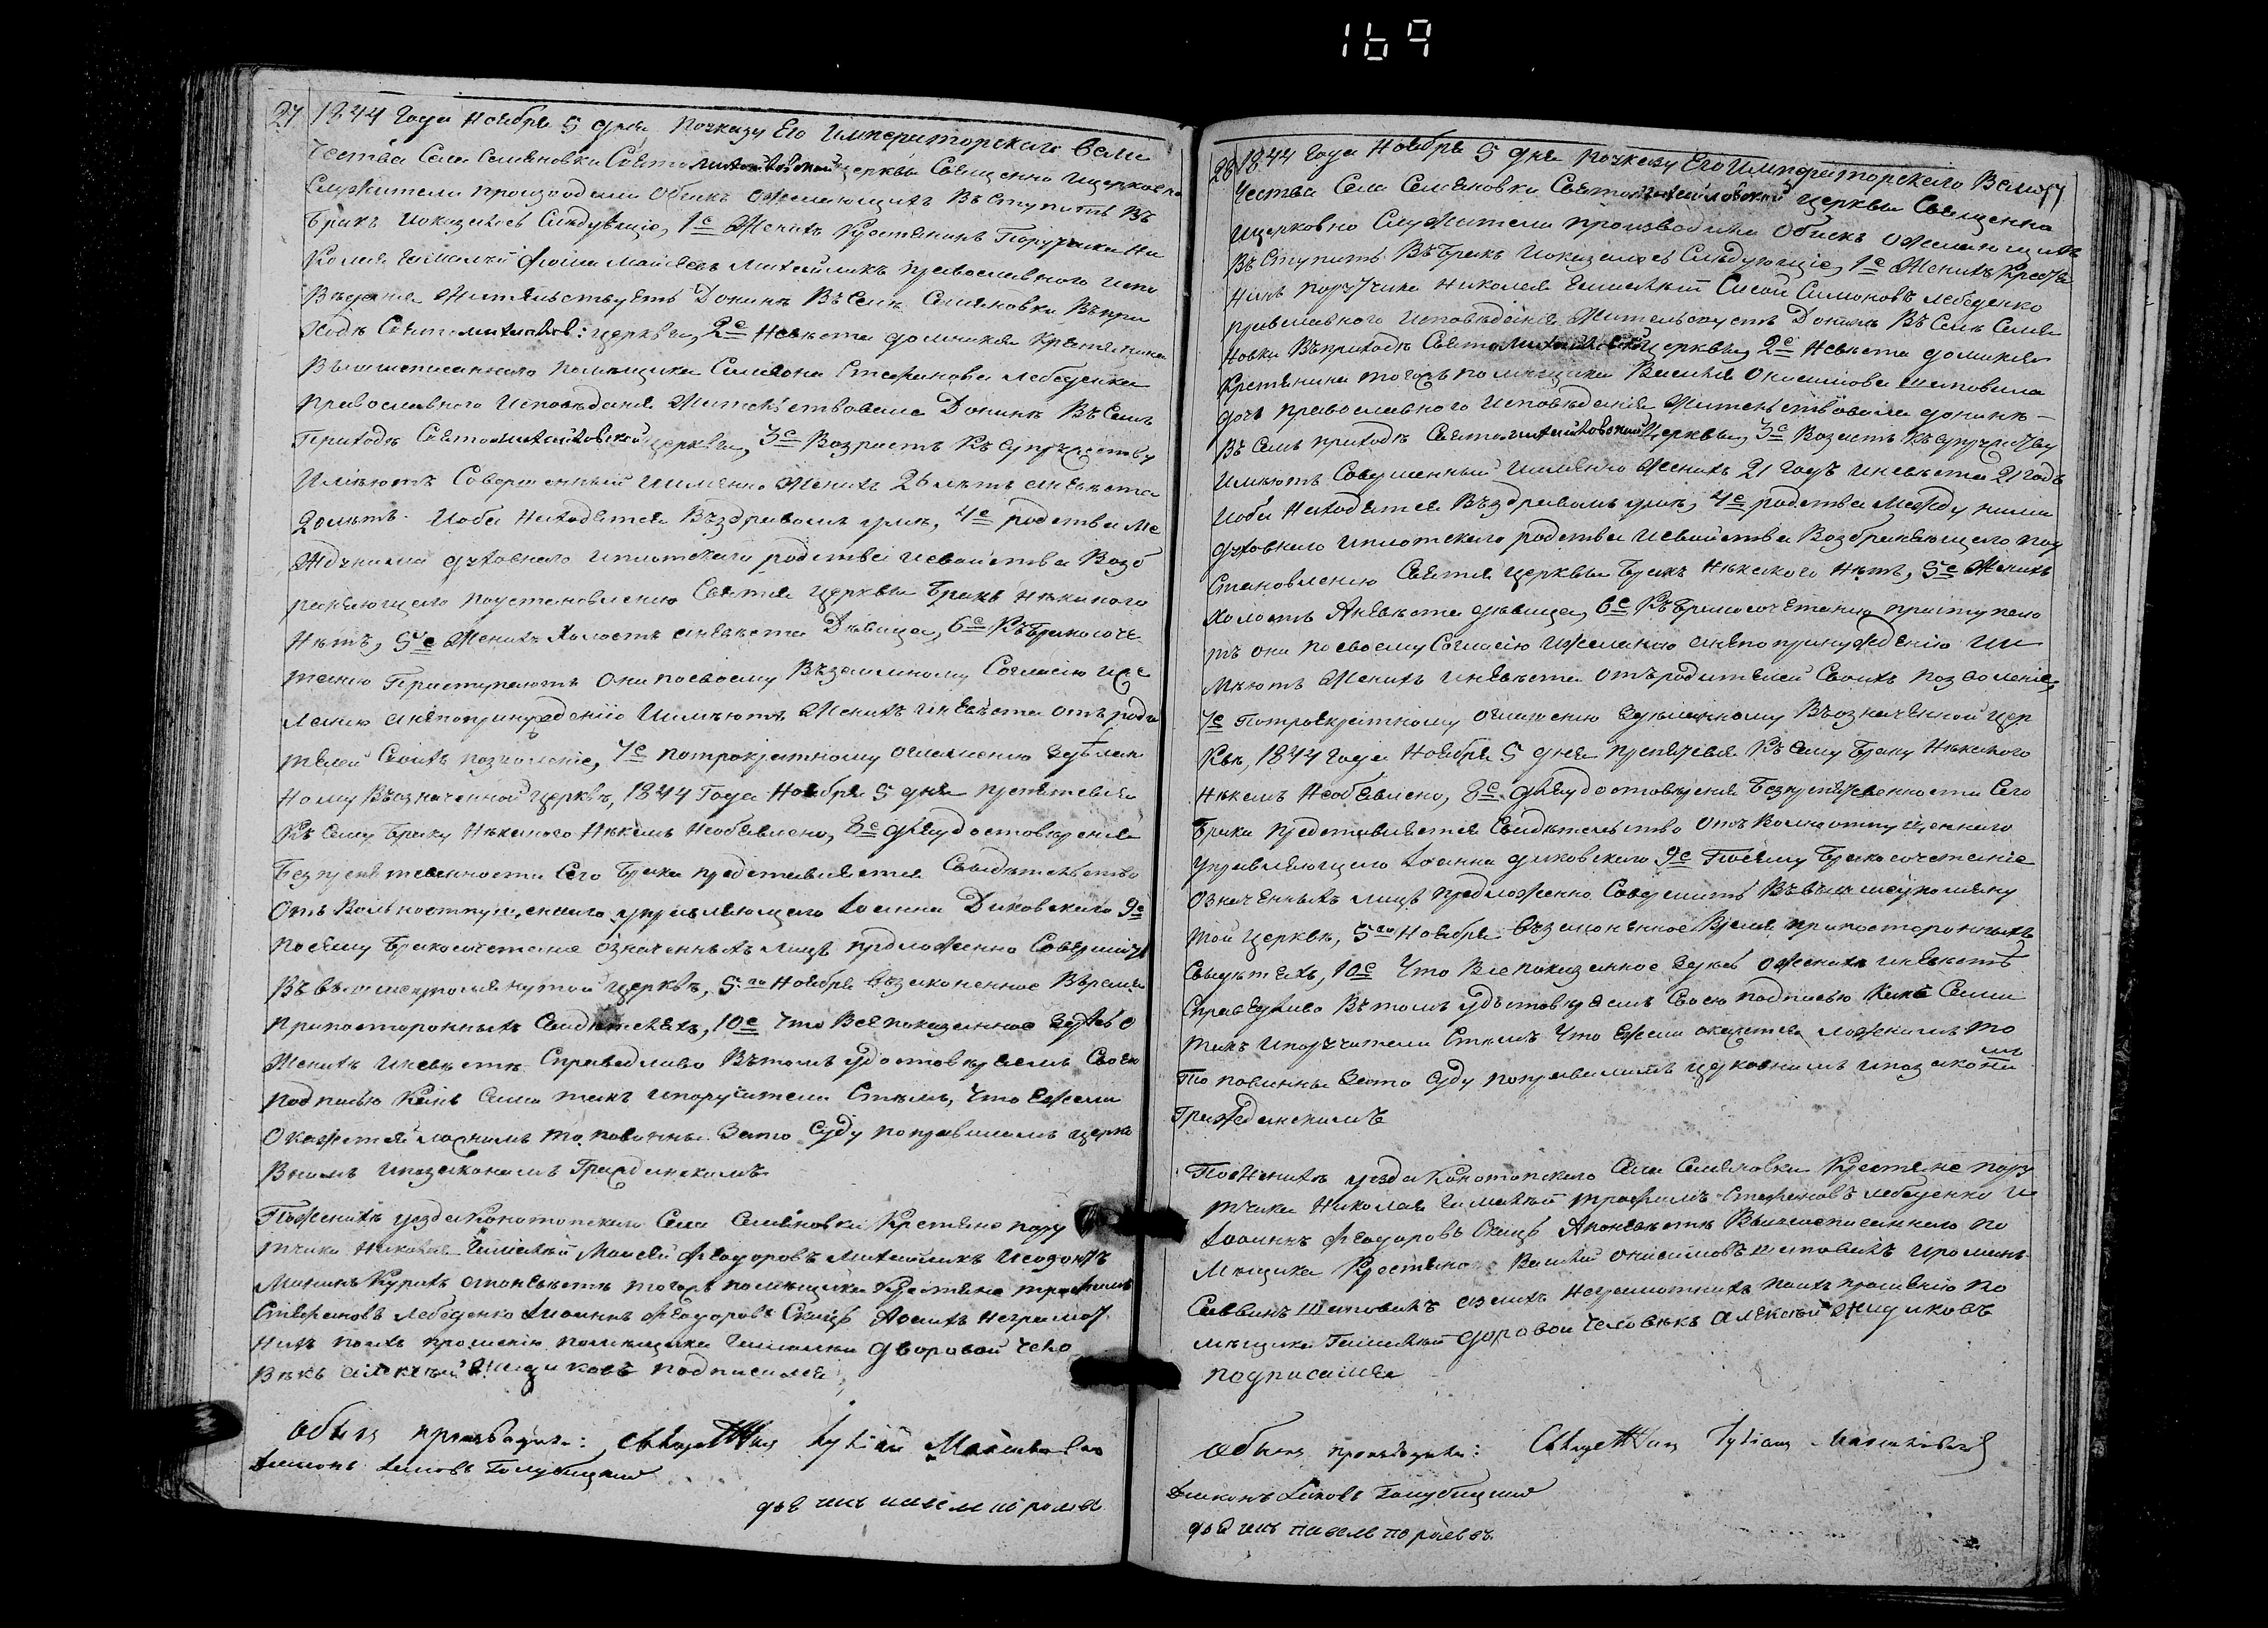 169
27 1844 Года Ноября 5 дня Поуказу Его Императорского Вели
чества Села Семяновки Святомихайловской церквы Священно ицерковно
Служители производили Обыскъ Ожелающихъ Въступить Въ
Бракъ Иоказалось Слѣдующіе, 1е Женихъ Крестянинъ Порутчика Ни
колая Фома Моисеевъ Михайликъ православного испо
ведания Жительствуетъ Донынѣ Въселѣ Семяновки Въпри
ходѣ Святомихайлов: церквы, 2е Невѣста дочь Крестянина
Вышеписанного помещика Симеона Стефанова Лебеденка
православного Исповѣданія Жительствовала Донынѣ Въсемъ
Приходѣ Святомихайловской церквы, 3е Возрастъ Къ супружеству
Имѣютъ Совершенный Именно Женихъ 26 лѣтъ аневѣста
20 лѣтъ. Иоба Находятся Въздравомъ умѣ, 4е родства Ме
ждунима духовного иплотского родства исвойства Возб
раняющего поустановлению Святыя церквы Бракъ Никакого
Нѣтъ, 5е Женихъ Холостъ аневѣста Дѣвица, 6е Къбракосоче
танию Приступаютъ Они посвоему Въземному Согласію иже
ланию анепопринуждению Имѣютъ Женихъ иневѣста отъроди
телей Своихъ позволеніе, 7е потроекратному оглашению Зделан
ному Въозначенной церквѣ, 1844 Года Ноября 5 дня препятсвия
Къ Сему Браку Никакого Никемъ Необявлено, 8е для удостоверения
Безпрепятсвенности Сего Брака представляется Свидѣтельство
Отъ Вольноотпущенного управляющего Іоанна Диковского 9е
посему бракосочетание означенныхъ лицъ предложенно Совершить
Въ вышеупомянутой церквѣ, 5го Ноября Възаконенное Время
Припосторонныхъ Свидѣтеляхъ, 10е Что Все показанное Здѣсь о
Женихѣ иневѣстѣ Справедливо Вътомъ удостовѣряемъ Своею
подписью Какъ Сами такъ ипоручители Стѣмъ, Что Ежели
Окажется ложнимъ то повинны Зато Суду поправиламъ церко
внимъ ипозаконамъ Гражданскимъ
Поженихѣ уезда Конотопского Села Семяновки Крестяне пору
тчика Николая Моисей Феодоровъ Михайликъ
апоневѣстѣ тогожъ помѣщика Крестяне Трофимъ
Стефановъ Лебеденко Іоаннъ Феодоровъ Скицъ Аоныхъ неграмот
ныхъ поихъ прошенію помѣщика дворовой чело
вѣкъ Алексѣй подписался
обыск производили: Священник
Диаконъ Іаковъ Голубицкий
28 1844 Года Ноября 5 дня Поуказу Его Императорского Вели
чества Села Семяновки Святомихайловской церквы Священно
ицерковно Служители производили Обыскъ Ожелающихъ
Въступить Въбракъ Иоказалось Слѣдующіе, 1е Женихъ Крестя
нинъ порутчика Николая Симоновъ Лебеденко
православного Исповѣданія Жительствуетъ Донынѣ Въ Селѣ Семя
новки Въприходѣ Святомихайловской церквы, 2е Невѣста
Крестянина тогожъ помѣщика Василия Онисимова Шаповала
дочь православного Исповѣдания Жительствовала донынѣ
Въ Семъ приходѣ Святомихайловской Церквы, 3е Возрастъ къ супружеству
Имѣютъ Совершенный Именно Женихъ 21 годъ иневѣста 21 годъ
Иоба Находятся Въздравомъ умѣ, 4е родства Между ними
духовного иплотского родства исвойства Возбраняющего поу
становлению Святыя церквы Бракъ Никакого Нѣтъ, 5е Женихъ
холостъ Аневѣста дѣвица, 6е Къбракосочетанию приступаю
тъ они посвоему Согласію ижеланию анепопринуждению Им
ѣютъ Женихъ иневѣста отъродителей Своихъ позволеніе,
7е Потроекратному оглашению Зделанному Въозначенной цер
квѣ, 1844 Года Ноября 5 дня препятсвия Къ Сему Браку Никакого
Никемъ Необявлено, 8е Для удостовѣрения Безпрепятсвенности Сего
Брака представляется Свидѣтельство Отъ Вольноотпущенного
управляющего Іоанна Диковского 9е Посему Бракосочетание
означенныхъ лицъ предложенно Совершить Въвышеупомяну
той церквѣ, 5го Ноября Възаконенное Время припосторонныхъ
Свидѣтеляхъ, 10е Что Все показанное Здѣсь оженихѣ иневѣстѣ
Справедливо Вътомъ удостовѣряемъ Своею подписью Какъ Сами
такъ ипоручители Стѣмъ Что Ежели окажется ложнимъ то
То повинны Зато Суду поправиламъ церковнимъ ипозакона
мъ
Гражданскимъ
Поженихѣ уезда Конотопского Села Семяновки Крестяне пору
тчика Николая Трофимъ Стефановъ Лебеденко и
Іоаннъ Феодоровъ Скицъ Апоневѣстѣ Вышеписанного по
мѣщика Крестяне Василий Онисимовъ Шаповалъ
Саввинъ Шаповалъ Неграмотныхъ поихъ прошению по
мѣщика дворовой человѣкъ Алексѣй
подписался
обыск производили: Священник
Диаконъ Іаковъ Голубицкий